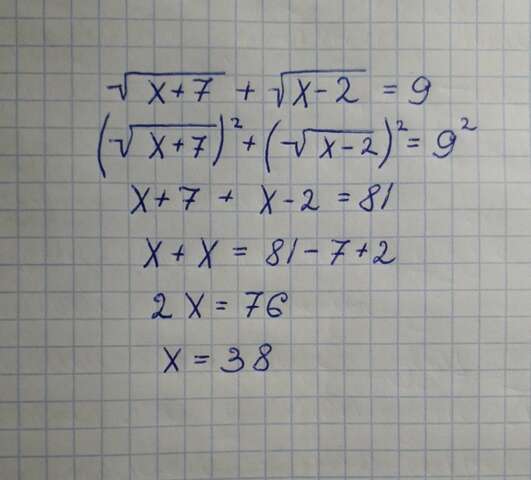 √x+7 + √x-2 = 9
(√x+7)² + (√x-2)² = 9²
x+7 + x-2 = 81
x + x = 81 - 7 + 2
2x = 76
x = 38